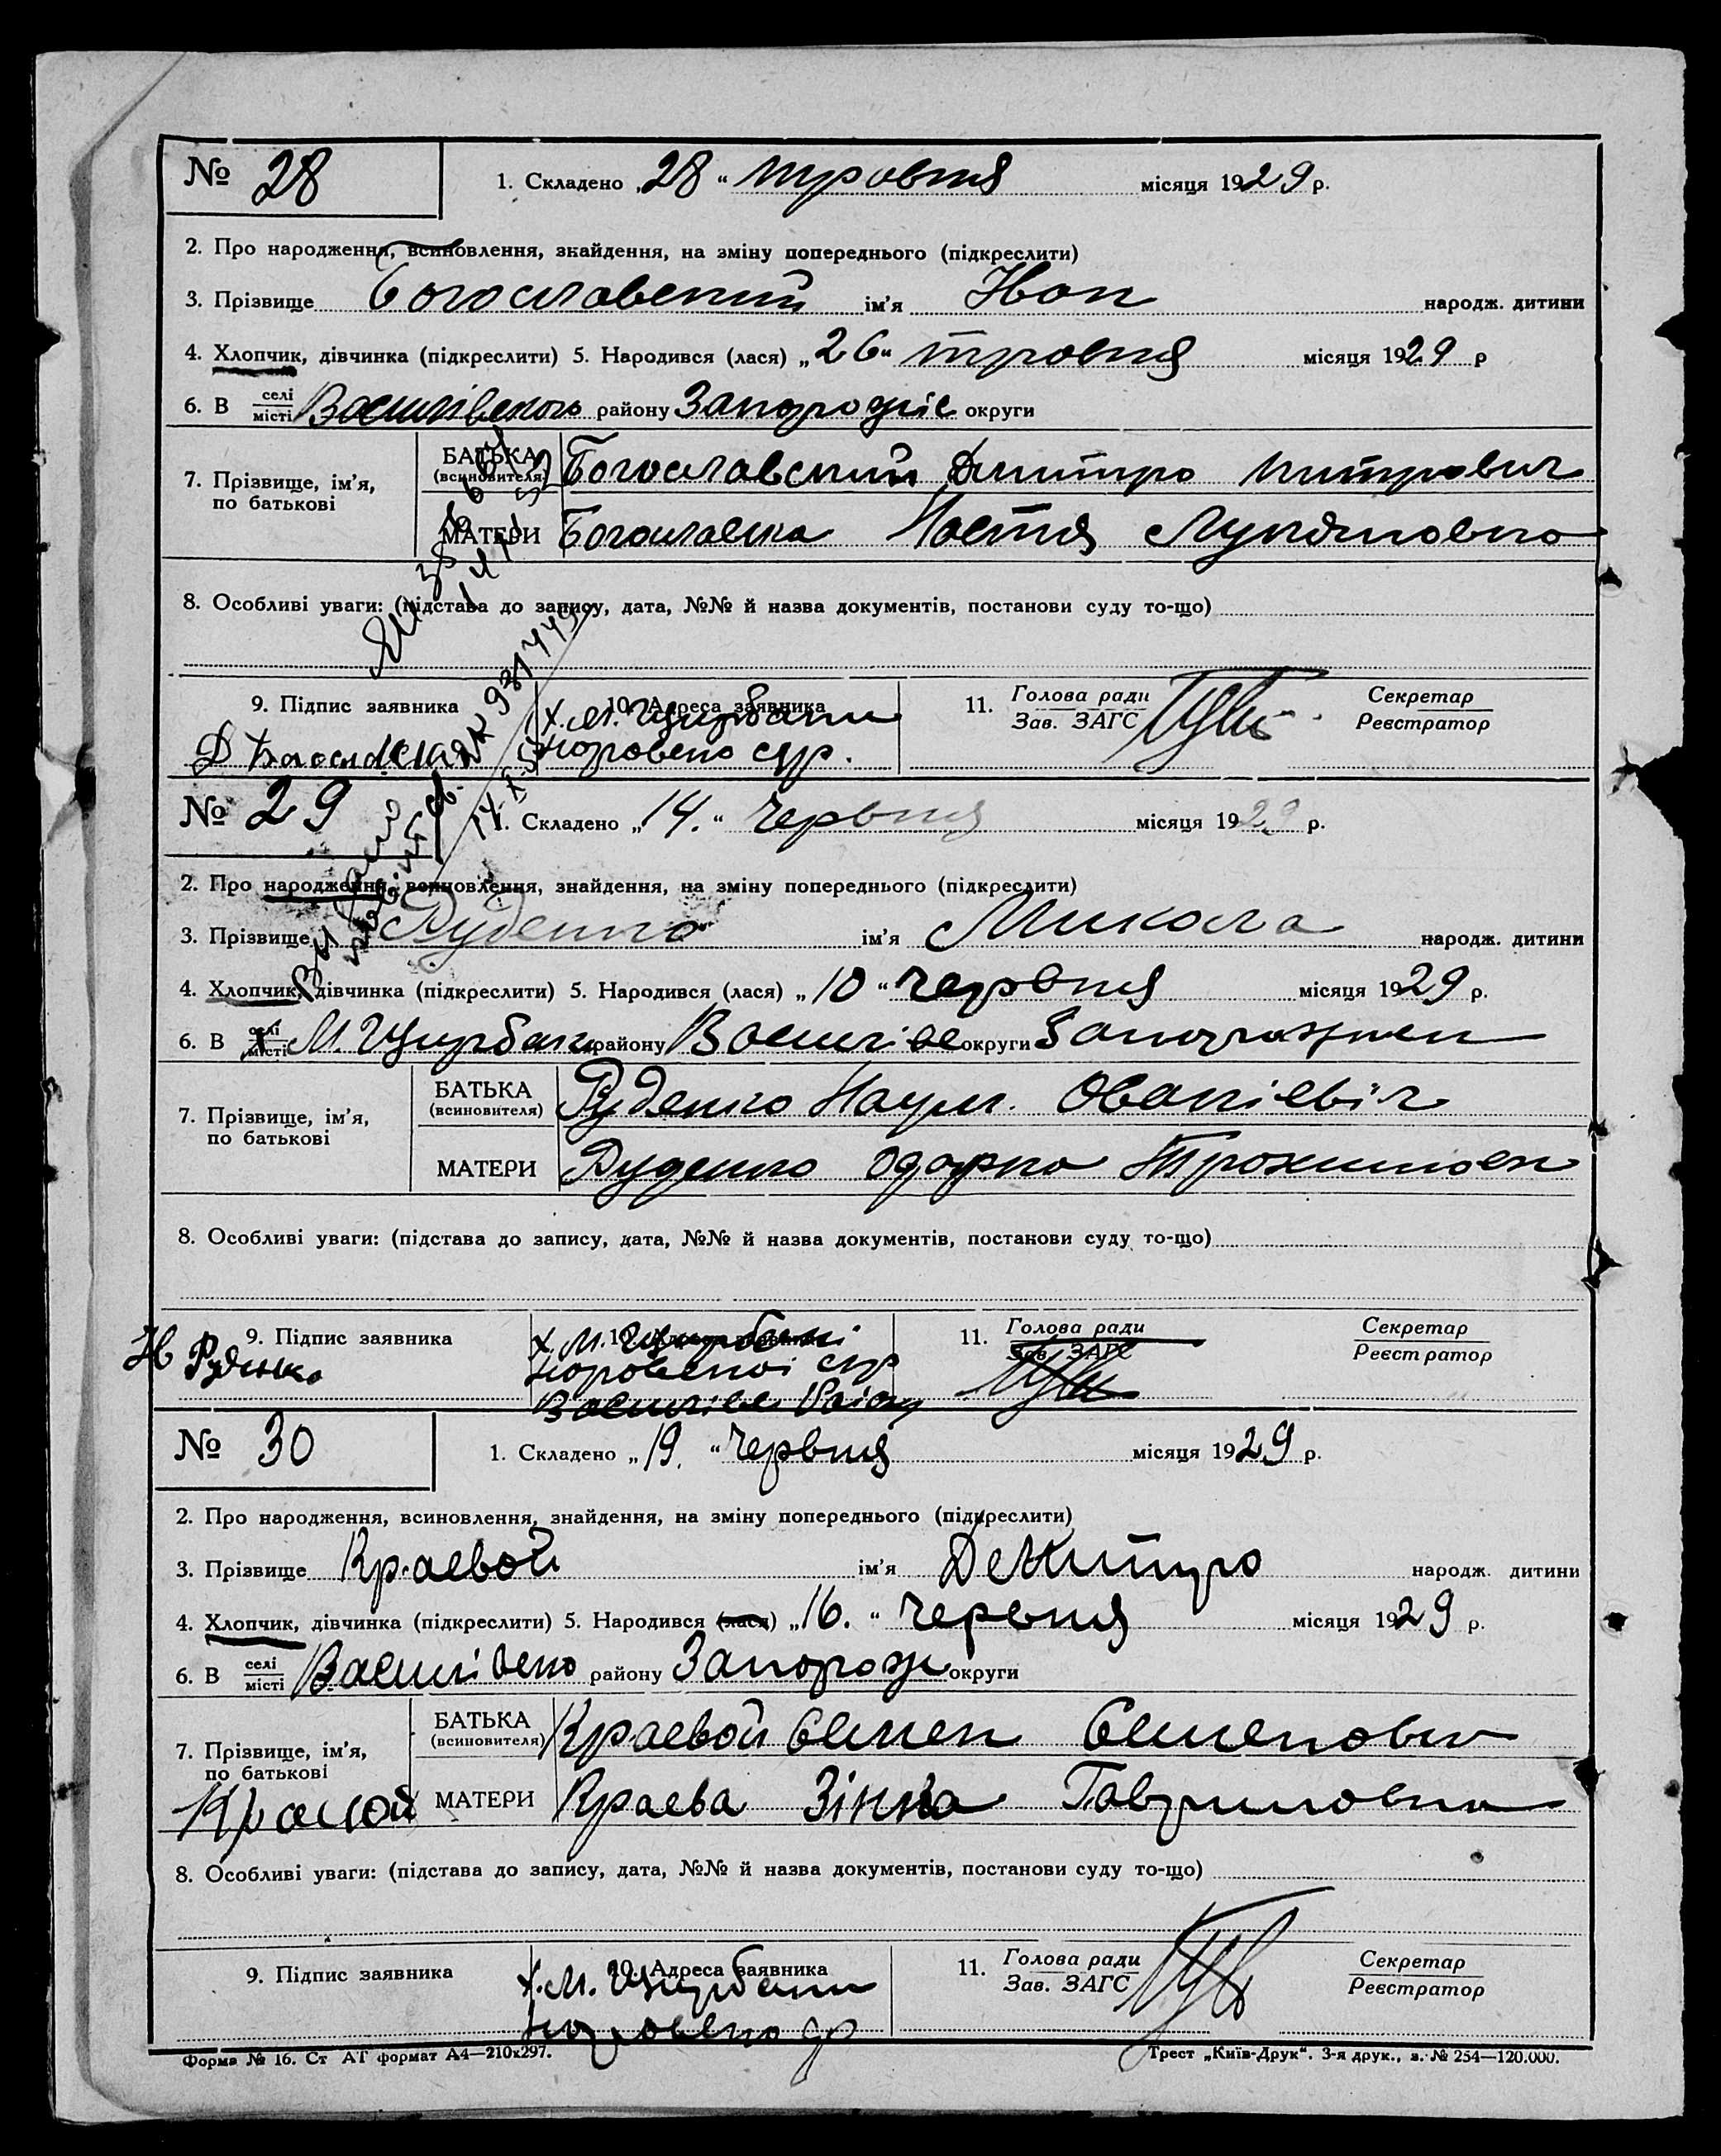 № 28
1. Складено „28“ травня місяця 1929 р.
2. Про народження, всиновлення, знайдення, на зміну попереднього (підкреслити)
3. Прізвище Богославский ім'я Иван народж. дитини
4. Хлопчик, дівчинка (підкреслити) 5. Народився (лася) „26“ травня місяця 1929 р
6. В селі місті Василівсього району Запорожіе округи
7. Прізвище, ім'я, по батькові
БАТЬКА (всиновителя) Богославский Дмитро Митрович
МАТЕРИ Богославска Настя
8. Особливі уваги: (підстава до запису, дата, №№ й назва документів, постанови суду то-що)
9. Підпис заявника
10. Адреса заявника
11. Голова ради Зав. ЗАГС
Секретар Реєстратор
х. М. Щирбани
сдр.
№ 29
1. Складено „14.“ Червня місяця 1929 р.
2. Про народження, всиновлення, знайдення, на зміну попереднього (підкреслити)
3. Прізвище Руденко ім'я Микола народж. дитини
4. Хлопчик, дівчинка (підкреслити) 5. Народився (лася) „10“ Червня місяця 1929 р.
6. В селі місті х М. Щирбани району Василівс округи Запорожжен
7. Прізвище, ім'я, по батькові
БАТЬКА (всиновителя) Руденко Наум Ованіевіч
МАТЕРИ Руденко Одарка
8. Особливі уваги: (підстава до запису, дата, №№ й назва документів, постанови суду то-що)
9. Підпис заявника
11. Голова ради Зав. ЗАГС
Секретар Реєстратор
Н Руденко
х. М. Щирбані
сдр
№ 30
1. Складено „19.“ Червня місяця 1929 р.
2. Про народження, всиновлення, знайдення, на зміну попереднього (підкреслити)
3. Прізвище Краевой ім'я Демитро народж. дитини
4. Хлопчик, дівчинка (підкреслити) 5. Народився (лася) „16.“ Червня місяця 1929 р.
6. В селі місті Василівско району Запорож округи
7. Прізвище, ім'я, по батькові
БАТЬКА (всиновителя) Краевой Семен Семенович
МАТЕРИ Краева Зінка Гавриловна
8. Особливі уваги: (підстава до запису, дата, №№ й назва документів, постанови суду то-що)
9. Підпис заявника
10. Адреса заявника
11. Голова ради Зав. ЗАГС
Секретар Реєстратор
х. М. Щирбани
Форма № 16. Ст АТ формат А4—210х297.
Трест „Київ-Друк“. 3-я друк., з. № 254—120.000.